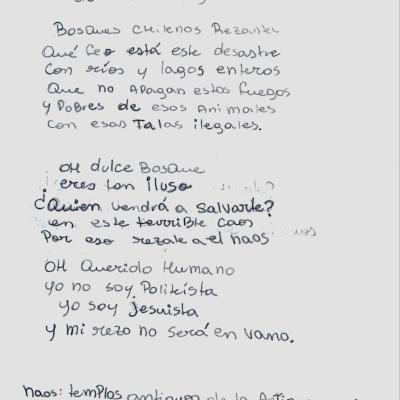 Bosques chilenos Rezantes
Qué feo está este desastre
Con ríos y lagos enteros
Que no Apagan estos fuegos
y pobres de esos Animales
con esas Talas ilegales.
OH dulce Bosque
eres tan iluso
¿Quien vendrá a salvarte?
en este terrible caos
Por eso rezale a el naos
OH Querido Humano
yo no soy Politísta
yo soy Jesuista
y mi rezo no será en vano.
naos: templos antiguos de la